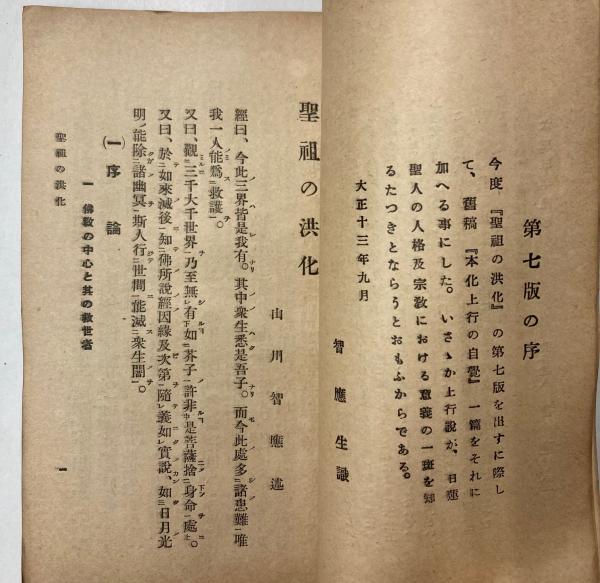 第七版の序
今度『聖祖の洪化』の第七版を出すに際し
て、舊稿『本化上行の自覺』一篇をそれに
加へる事にした。いさゝか上行說が、日蓮
聖人の人格及宗敎における意義の一斑を知
るたつきとならうとおもふからである。
大正十三年九月
智應生識
聖祖の洪化
山川智應述
經曰、今此三界皆是我有。其中衆生悉是吾子。而今此處多諸患難唯
我一人能爲救護。
又曰、觀三千大千世界乃至無有如芥子許非是菩薩捨身命處。
又曰、於如來滅後知佛所說經因緣及次第隨義如實說、如日月光
明能除諸幽冥斯人行世間能滅衆生闇。
(一)序論
一 佛敎の中心と其の救世者
聖祖の洪化
一